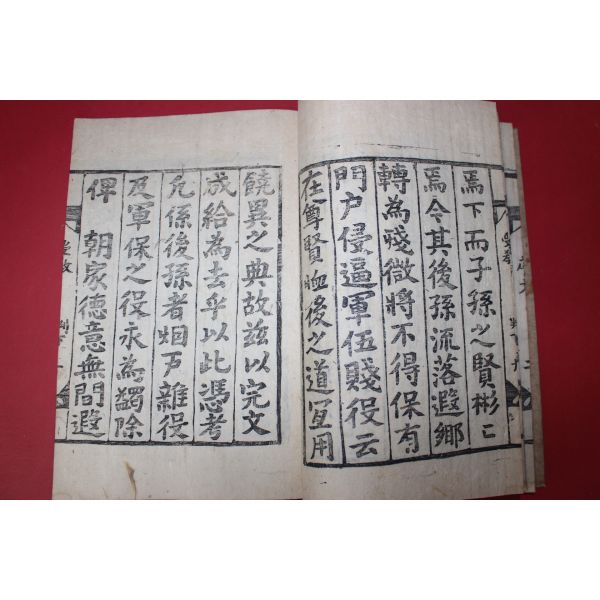 焉下而子孫之賢彬〻
焉令其後孫流落遐鄉
轉為殘微將不得保有
門户侵逼軍伍賤役云
在尊賢恤後之道宜用
饒異之典故玆以完文
成給為去乎以此憑考
凡係後孫者烟戸雜役
及軍保之役永為蠲除
俾　朝家德意無間遐